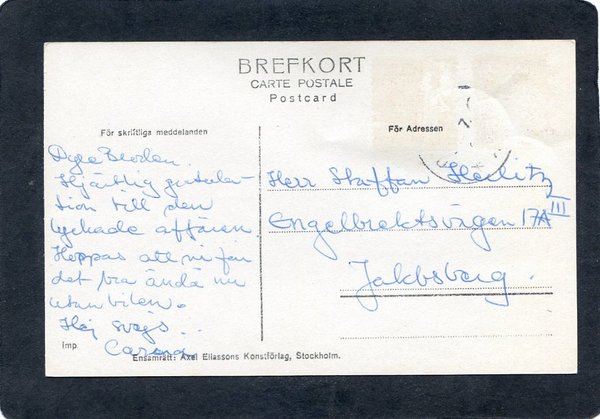 BREFKORT
CARTE POSTALE
Postcard
För skriftliga meddelanden
För Adressen
Hjärtlig gratula-
tion till den
lyckade affären
Hoppas att ni får
det bra ändå nu
utan bilen.
Hej svejs.
Herr Staffan Heilitz
Engelbrektsvägen 17A III
Jakobsberg.
Imp.
Ensamrätt: Axel Eliassons Konstförlag, Stockholm.